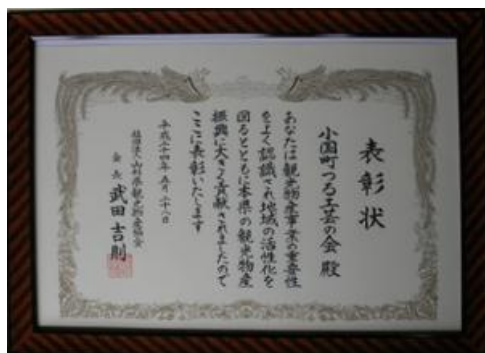 表彰状
小国町つる工芸の会 殿
あなたは観光物産事業の重要性
をよく認識され地域の活性化を
図るとともに本県の観光物産
振興に大きく貢献されましたので
ここに表彰いたします
平成二十四年 五月 二十八日
社団法人山形県観光物産協会
会長 武田吉則